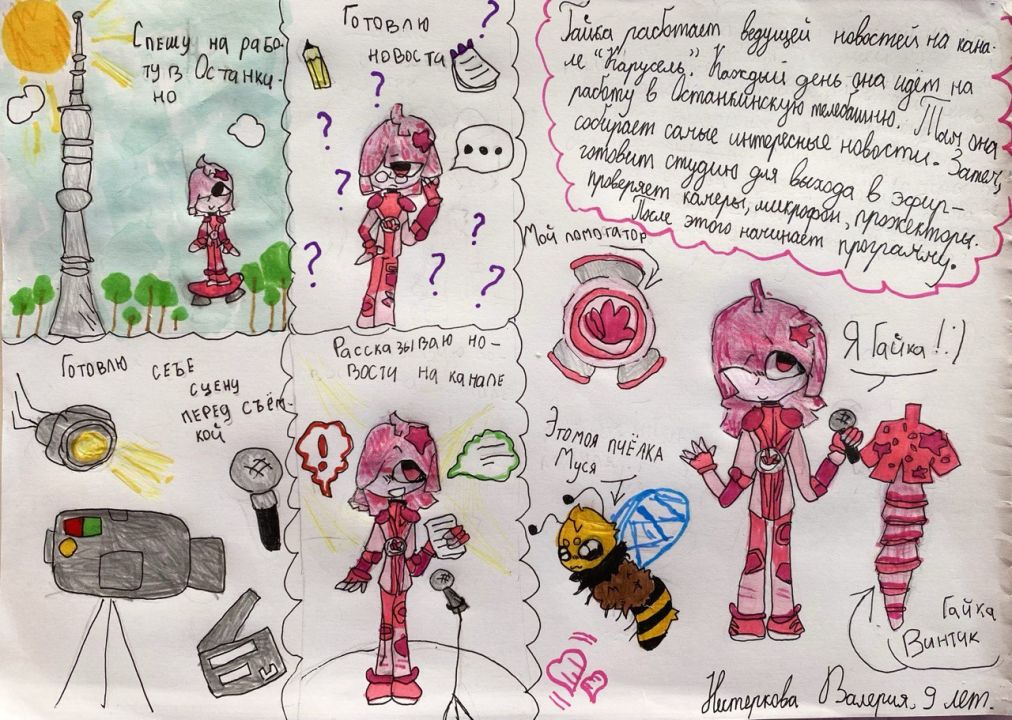 Спешу на рабо-
ту в Останки-
но
Готовлю
новости
?
?
?
?
?
?
?
?
...
Гайка работает ведущей новостей на кана-
ле "Карусель". Каждый день она идёт на
работу в Останкинскую телебашню. Там она
собирает самые интересные новости. Затем,
готовит студию для выхода в эфир-
проверяет камеры, микрофон, прожекторы.
После этого начинает программу.
Готовлю себе
сцену
перед съём-
кой
Рассказываю но-
вости на канале
!
Мой помогатор
Я Гайка!:)
Это моя пчёлка
Муся
Гайка
Винтик
Нестеркова Валерия, 9 лет.